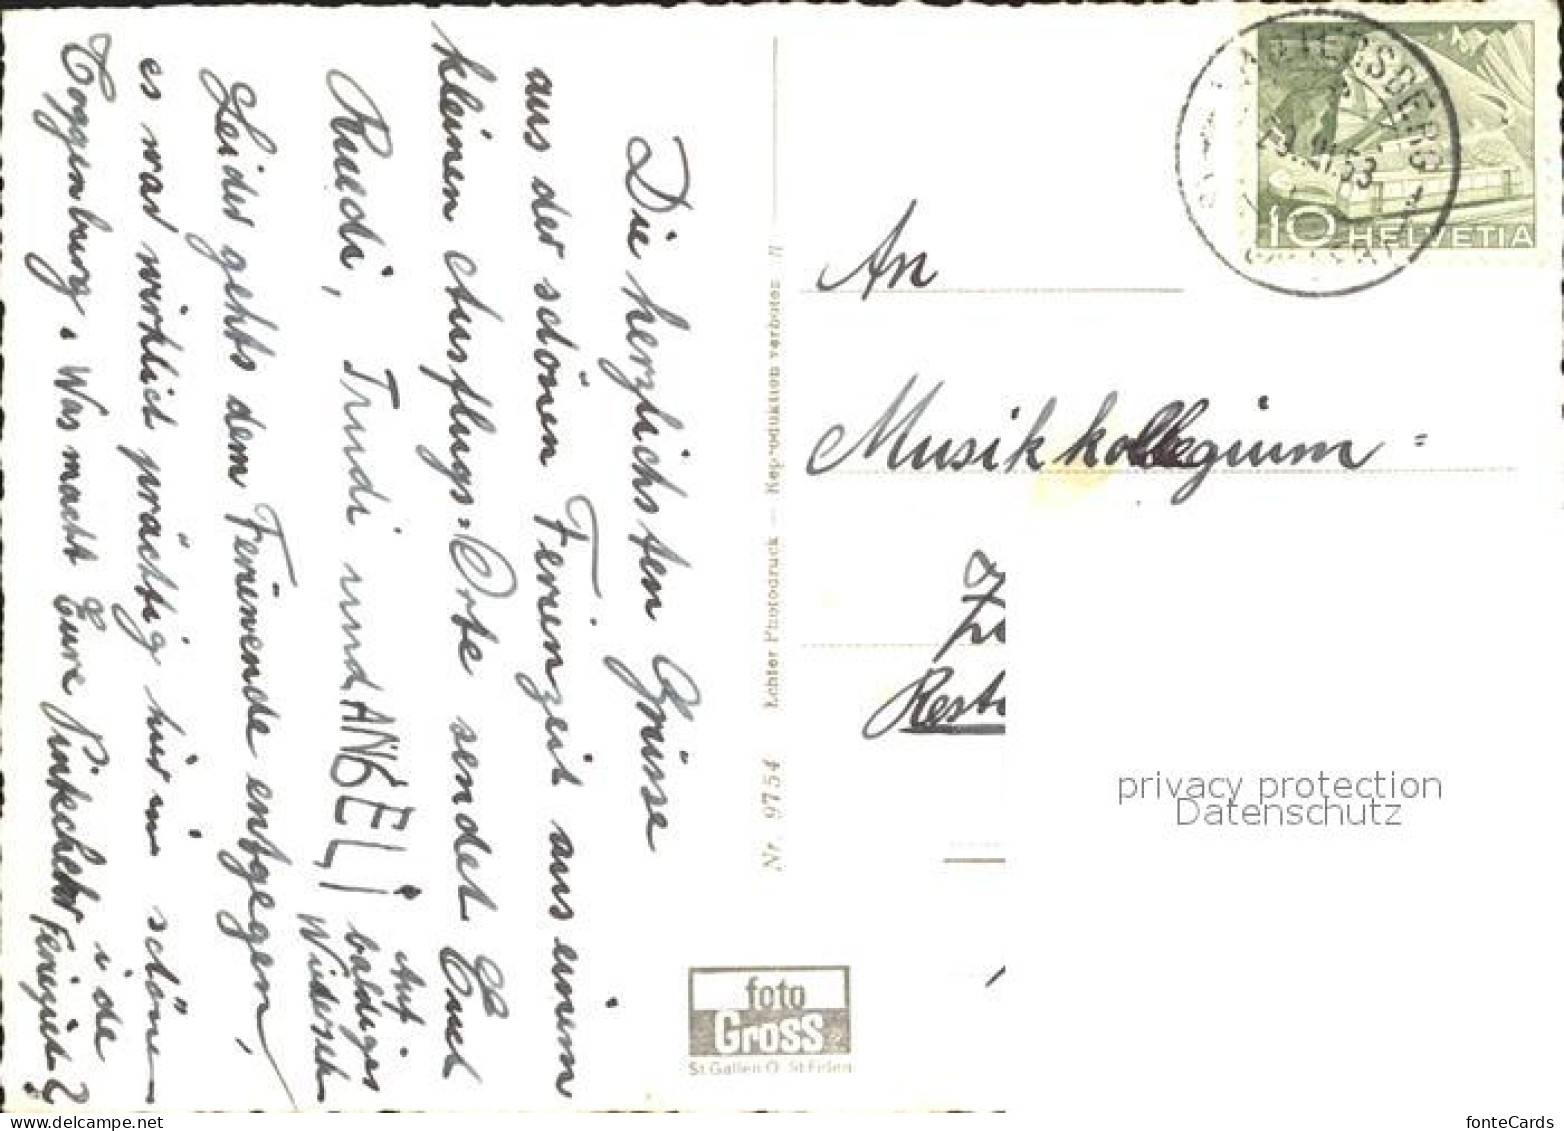 Die herzlichsten Grüsse
aus der schönen Ferienzeit aus einem
kleinen Ausflugs-Orte sendet Euch
Ruedi, Trudi und ANGELI
Auf
baldiges
Wiederseh
Leider gehts dem Ferienende entgegen,
es war wirklich prächtig hier im schönen
Toggenburg. Was macht Eure i de Ferienzeit?
Nr. 9754 Echter Photodruck — Reproduktion verboten
foto
Gross
St Gallen O. St Fiden
10 HELVETIA
53
An
Musikkollegium =
privacy protection
Datenschutz
www.delcampe.net
fonteCards